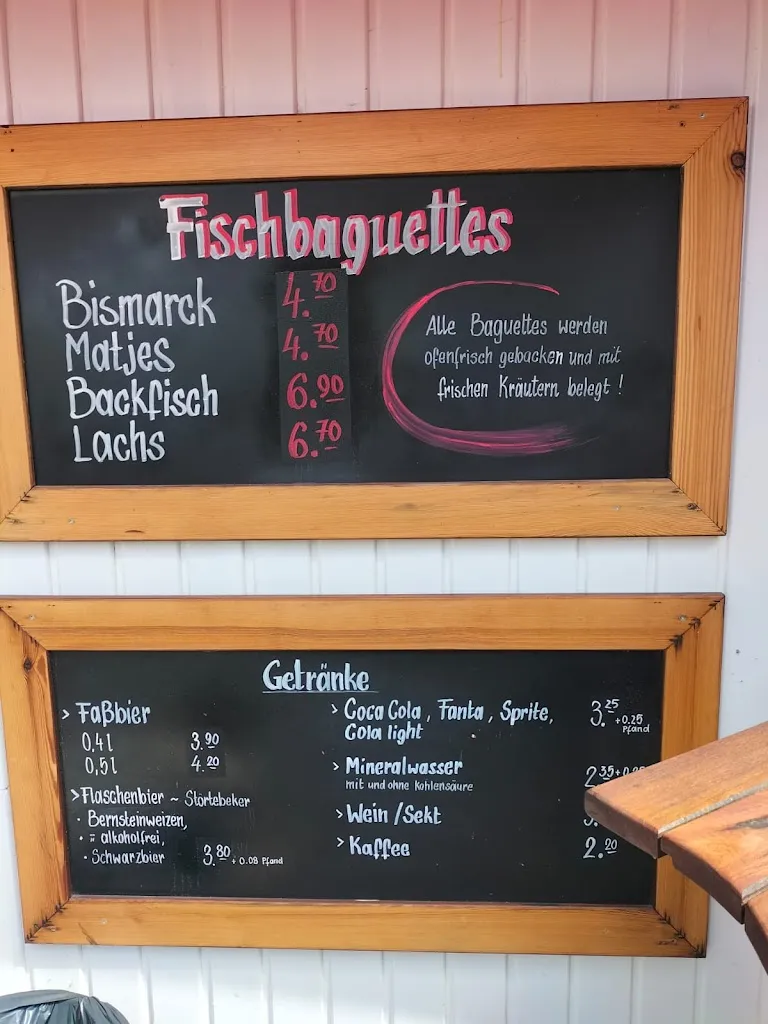 Fischbaguettes
Bismarck 4.70
Matjes 4.70
Backfisch 6.90
Lachs 6.70
Alle Baguettes werden
ofenfrisch gebacken und mit
frischen Kräutern belegt !
Getränke
> Faßbier
0,4l 3.90
0,5l 4.20
> Flaschenbier ~ Störtebeker
· Bernsteinweizen,
· " alkoholfrei,
· Schwarzbier 3.80 + 0.08 Pfand
> Coca Cola, Fanta, Sprite, 3.25 +0.25
Cola light Pfand
> Mineralwasser 2.35 +
mit und ohne Kohlensäure
> Wein /Sekt
> Kaffee 2.20